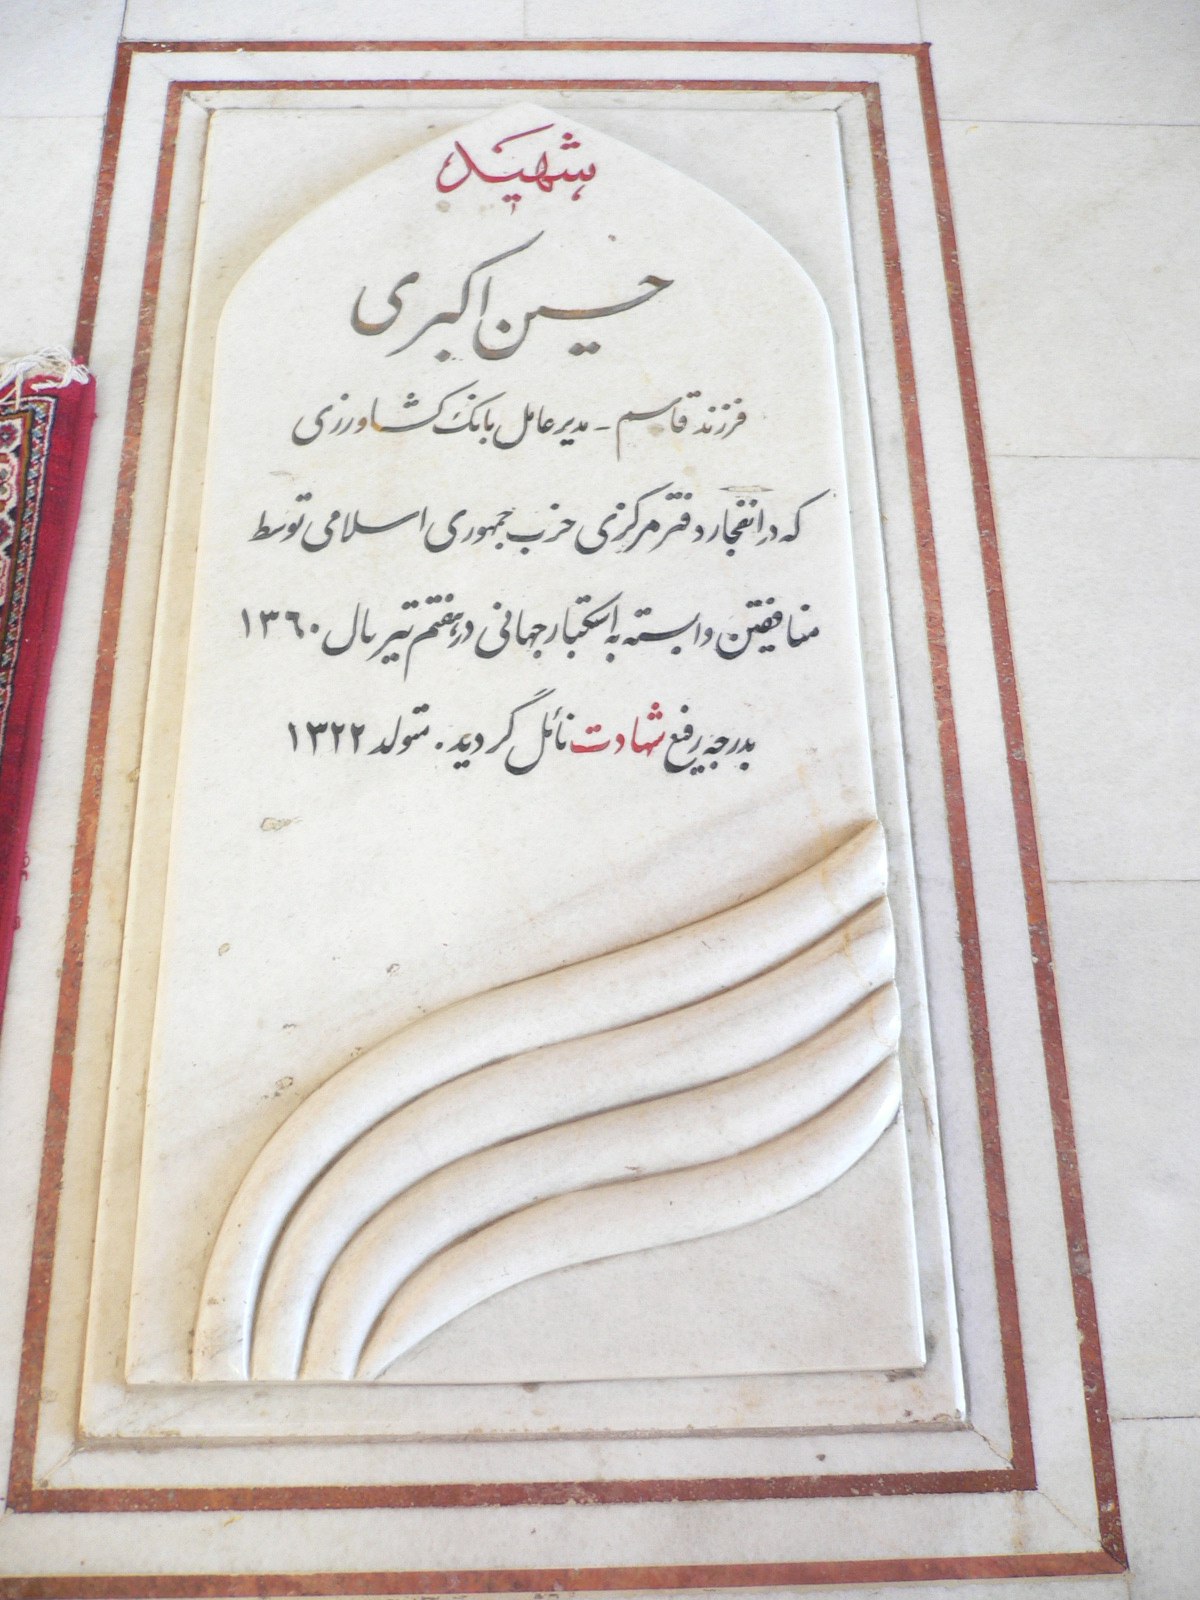 شهید
حسین اکبری
فرزند قاسم - مدیر عامل بانک کشاورزی
که در انفجار دفتر مرکزی حزب جمهوری اسلامی توسط
منافقین وابسته به استکبار جهانی در هفتم تیر سال ۱۳۶۰
بدرجه رفیع شهادت نائل گردید . متولد ۱۳۲۲